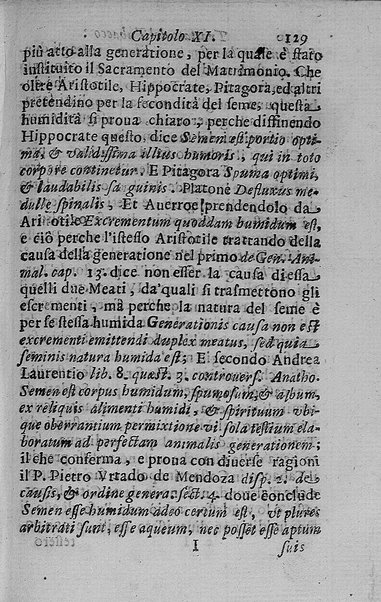 Capitolo XI. 129
più atto alla generatione, per la quale è stato
instituito il Sacramento del Matrimonio. Che
oltre Aristotile, Hippocrate, Pitagora, ed altri
pretendino per la fecondità del seme, questa
humidità si proua chiaro, perche diffinendo
Hippocrate questo, dice Semen est portio opti-
ma, & validissima illius humoris, qui in toto
corpore continetur. E Pitagora Spuma optimi,
& laudabilis sanguinis. Platone Defluxus me-
dullę spinalis, Et Auerroe prendendolo da
Aristotile Excrementum quoddam humidum est,
e ciò perche l'istesso Aristotile trattando della
causa della generatione nel primo de Gen. Ani-
mal. cap. 13. dice non esser la causa di essa
quelli due Meati, da'quali si trasmettono gli
escrementi, mà perche la natura del seme è
per se stessa humida Generationis causa non est
excrementi emittendi duplex meatus, sed quia
seminis natura humida est; E secondo Andrea
Laurentio lib. 8. quæst. 3. controuers. Anatho.
Semen est corpus humidum, spumosum, & album,
ex reliquiis alimenti humidi, & spirituum vbi-
que oberrantium permixtione vi sola testium ela-
boratum ad perfectam animalis generationem;
il che conferma, e proua con diuerse ragioni
il P. Pietro Vrtado de Mendoza disp. 2. de
causis, & ordine genera. sect. 4. doue conclude
Semen esse humidum adeo certum est, vt plures
arbitrati sunt, esse aqueum, nec posset esse aptum
I suis